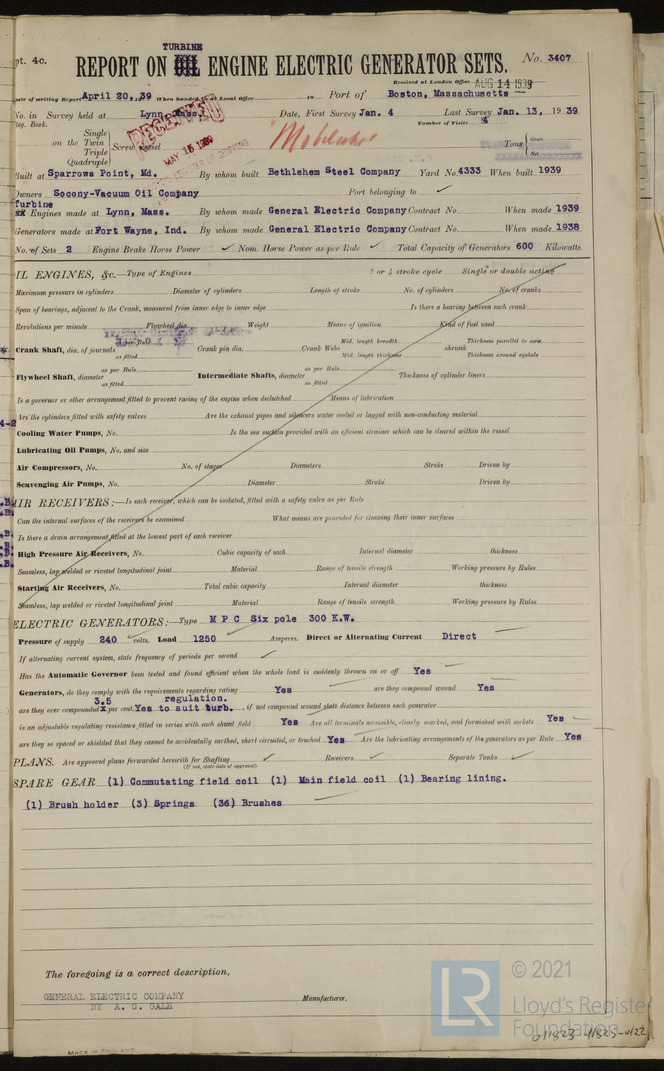 TURBINE
pt. 4c. REPORT ON OIL ENGINE ELECTRIC GENERATOR SETS. No. 3407
Received at London Office AUG 14 1939
Date of writing Report April 20, 39 When handed in at Local Office 19 Port of Boston, Massachusetts
No. in Survey held at Lynn, Mass. Date, First Survey Jan. 4 Last Survey Jan. 13, 1939
Reg. Book. Number of Visits 4
RECEIVED
MAY 15 1939
Single
on the Twin
Triple
Quadruple
Screw vessel
Tons
Gross
Net
Built at Sparrows Point, Md. By whom built Bethlehem Steel Company Yard No. 4333 When built 1939
Owners Socony-Vacuum Oil Company Port belonging to
Turbine
Engines made at Lynn, Mass. By whom made General Electric Company Contract No. When made 1939
Generators made at Fort Wayne, Ind. By whom made General Electric Company Contract No. When made 1938
No. of Sets 2 Engine Brake Horse Power Nom. Horse Power as per Rule Total Capacity of Generators 600 Kilowatts.
IL ENGINES, &c.—Type of Engines 2 or 4 stroke cycle Single or double acting
Maximum pressure in cylinders Diameter of cylinders Length of stroke No. of cylinders No. of cranks
Span of bearings, adjacent to the Crank, measured from inner edge to inner edge Is there a bearing between each crank
Revolutions per minute Flywheel dia. Weight Means of ignition Kind of fuel used
Crank Shaft, dia. of journals as per Rule as fitted Crank pin dia. Crank Webs Mid. length breadth Mid. length thickness shrunk Thickness parallel to axis Thickness around eyehole
Flywheel Shaft, diameter as per Rule as fitted Intermediate Shafts, diameter as per Rule as fitted Thickness of cylinder liners
Is a governor or other arrangement fitted to prevent racing of the engine when declutched Means of lubrication
Are the cylinders fitted with safety valves Are the exhaust pipes and silencers water cooled or lagged with non-conducting material
Cooling Water Pumps, No. Is the sea suction provided with an efficient strainer which can be cleared within the vessel
Lubricating Oil Pumps, No. and size
Air Compressors, No. No. of stages Diameters Stroke Driven by
Scavenging Air Pumps, No. Diameter Stroke Driven by
AIR RECEIVERS:—Is each receiver, which can be isolated, fitted with a safety valve as per Rule
Can the internal surfaces of the receivers be examined What means are provided for cleaning their inner surfaces
Is there a drain arrangement fitted at the lowest part of each receiver
High Pressure Air Receivers, No. Cubic capacity of each Internal diameter thickness
Seamless, lap welded or riveted longitudinal joint Material Range of tensile strength Working pressure by Rules
Starting Air Receivers, No. Total cubic capacity Internal diameter thickness
Seamless, lap welded or riveted longitudinal joint Material Range of tensile strength Working pressure by Rules
ELECTRIC GENERATORS:—Type M P C Six pole 300 K.W.
Pressure of supply 240 volts. Load 1250 Amperes. Direct or Alternating Current Direct
If alternating current system, state frequency of periods per second
Has the Automatic Governor been tested and found efficient when the whole load is suddenly thrown on or off Yes
Generators, do they comply with the requirements regarding rating Yes are they compound wound Yes
3.5 regulation.
are they over compounded x per cent. Yes to suit turb. , if not compound wound state distance between each generator
is an adjustable regulating resistance fitted in series with each shunt field Yes Are all terminals accessible, clearly marked, and furnished with sockets Yes
are they so spaced or shielded that they cannot be accidentally earthed, short circuited, or touched Yes Are the lubricating arrangements of the generators as per Rule Yes
PLANS. Are approved plans forwarded herewith for Shafting Receivers Separate Tanks
(If not, state date of approval)
SPARE GEAR (1) Commutating field coil (1) Main field coil (1) Bearing lining.
(1) Brush holder (3) Springs (36) Brushes
The foregoing is a correct description,
GENERAL ELECTRIC COMPANY
BY A. G. GALE Manufacturer.
MADE IN ENGLAND
LR © 2021
Lloyd's Register
Foundation